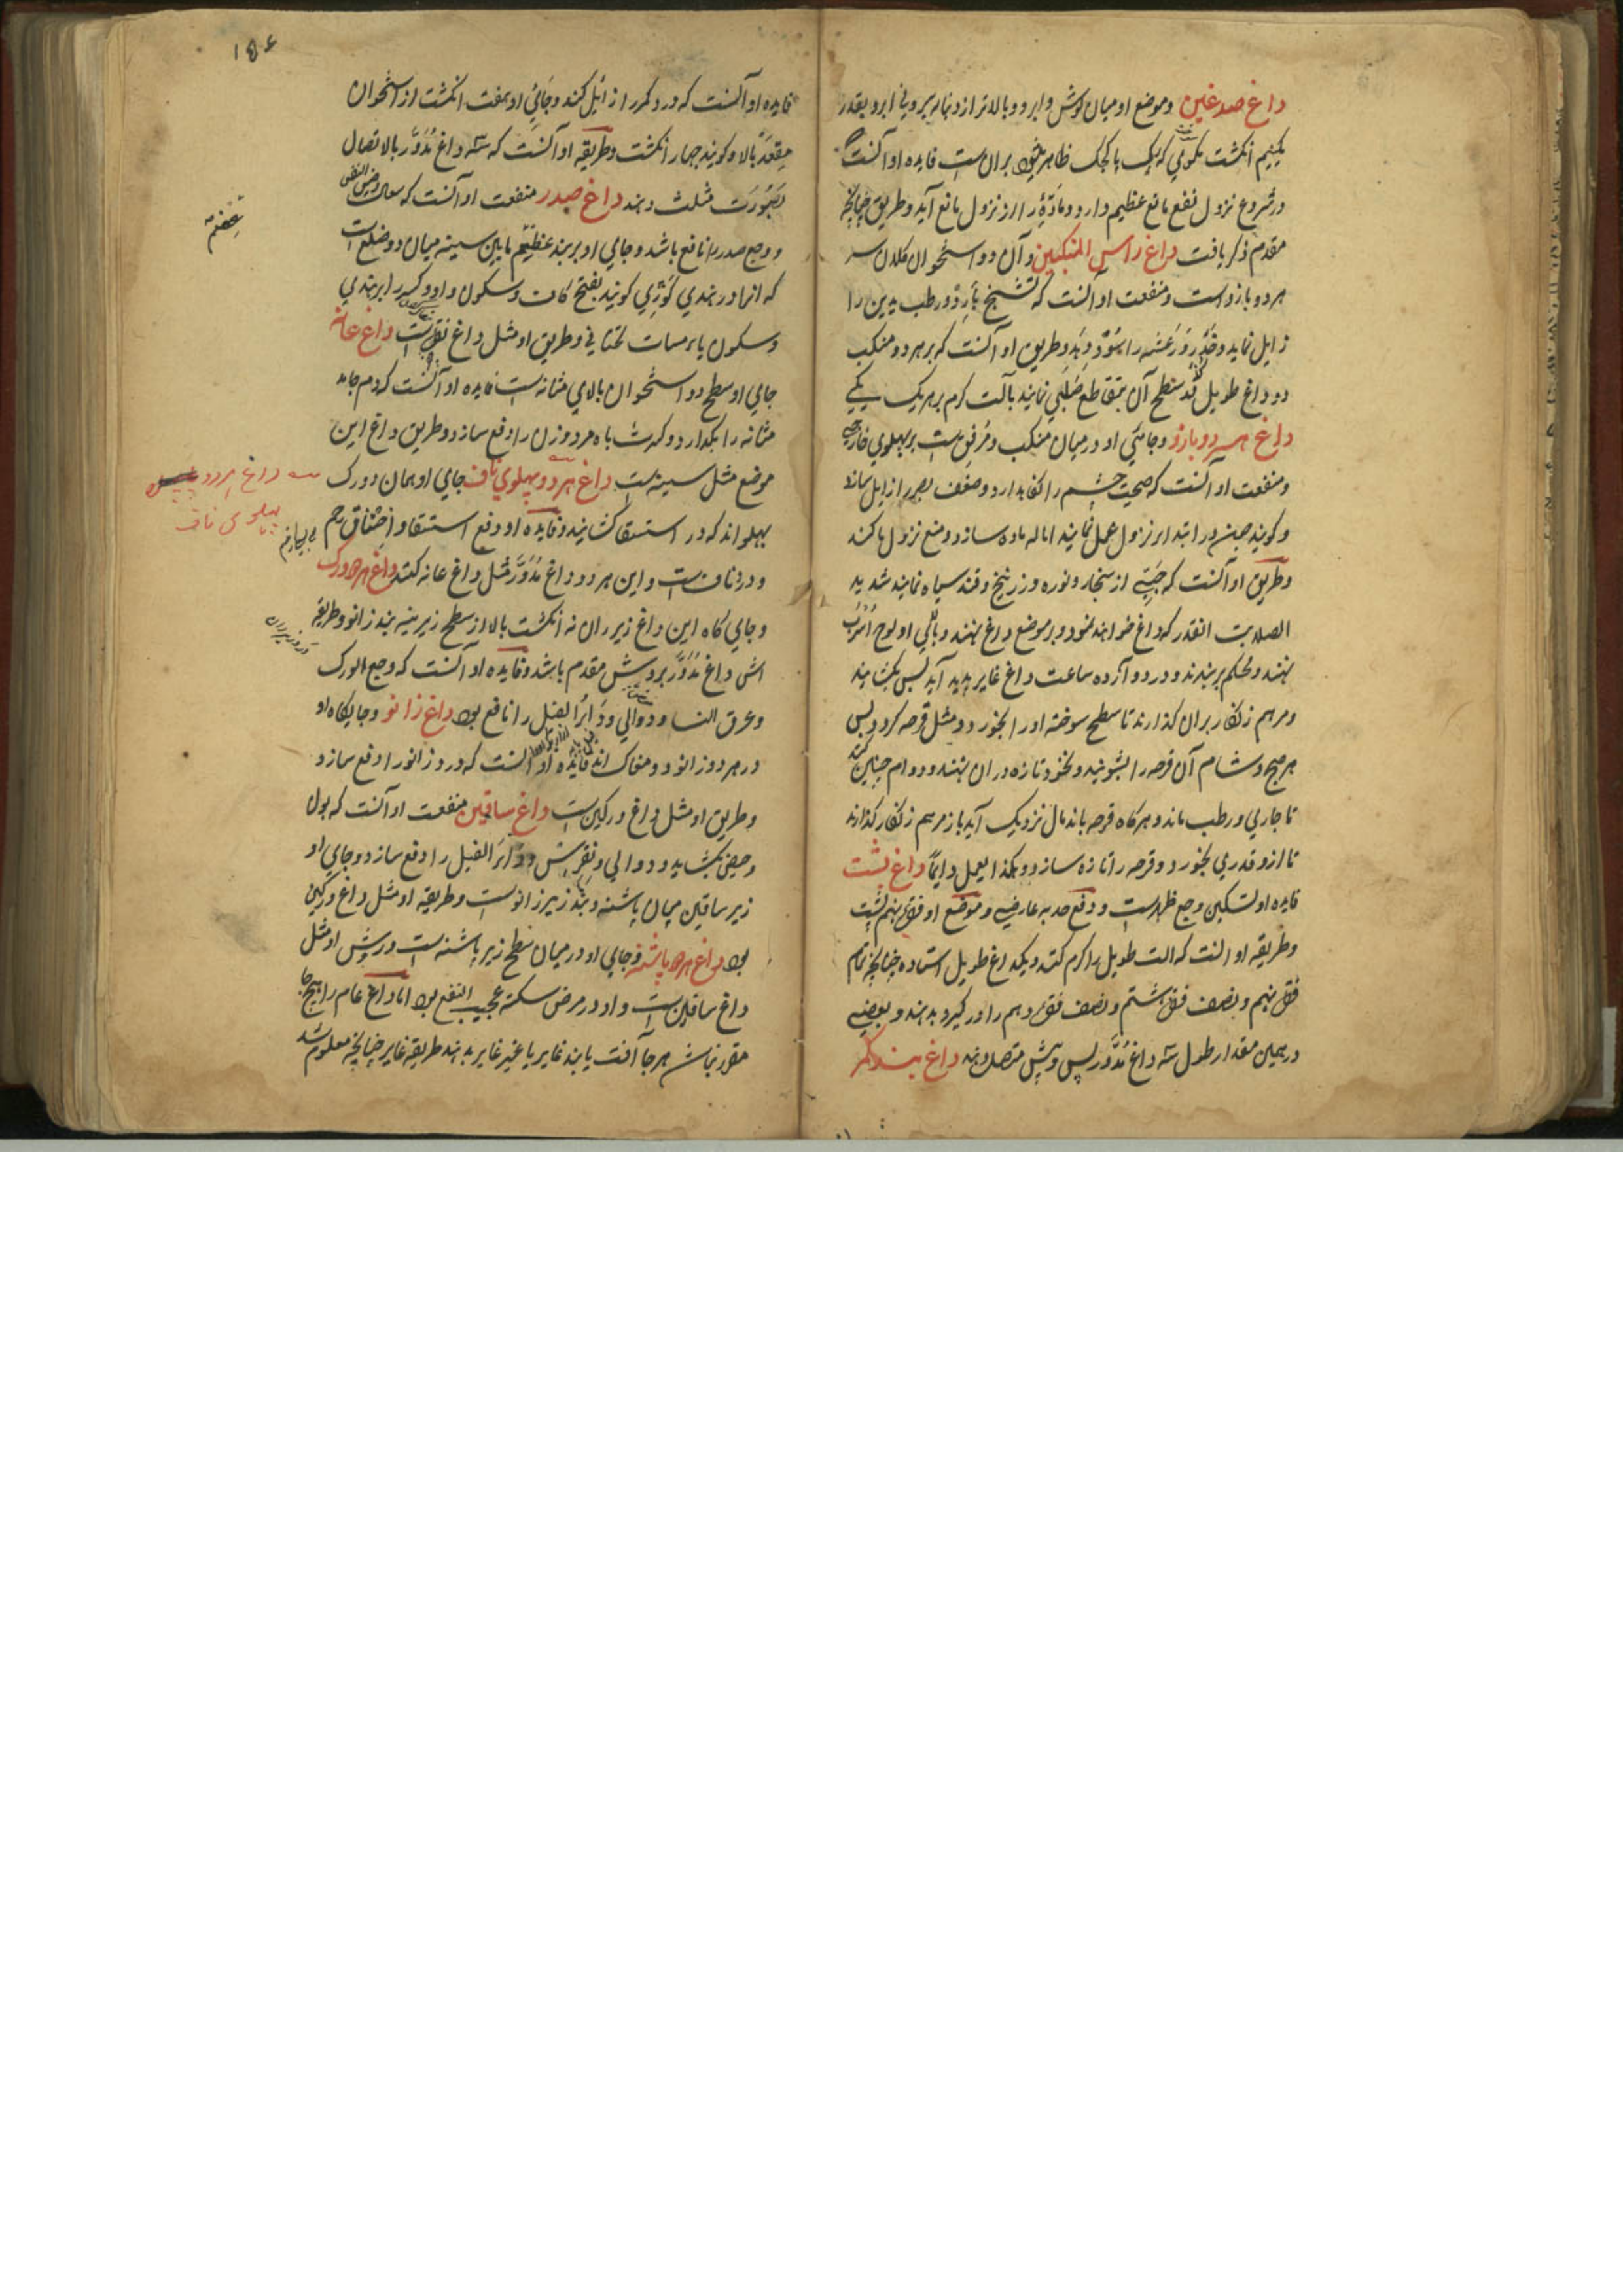 داغ صدغین وموضع او میان کوش وابرو وبالاتر از دنباله بیرونی ابرو بقدر
یکنیم انکشت نکوبی که یک پا کجک ظاهر شود بران ست فایده او آنست که
در شروع نزول نفع مانع عظیم دارد ومادّۀ را از نزول مانع آید وطریق چنانچه
مقدم ذکر یافت داغ راس المنکبین وآن دو استخوان کلان سر
هر دو بازو است ومنفعت او آنست که تشنج بارد ورطب یدین را
زایل نماید وخدر ورعشه را سود دهد وطریق او آنست که بر هر دو منکب
دو داغ طویل که سطح آن بتقاطع صلیبی نمایند بآلت کرم بر هر یک یکی
داغ هر دو بازو وجائی او در میان منکب ومرفق ست بر پهلوی خارج
ومنفعت او آنست که صحت چشم را نکاهدارد وضعف بصر را زایل سازد
وکویند چون در ابتدا نزول عمل نمایند اماله ماده سازد ومنع نزول ما کند
وطریق او آنست که حبّی از سنجار ونوره وزرنیخ وقند سیاه نمایند شدید
الصلابت انقدر که داغ خواهند نمود وبر موضع داغ نهند وبالای او لوح اسرب
نهند ومحکم بربندند ودر دوازده ساعت داغ غایر پدید آید پس بکشایند
ومرهم زنکار بران کذارند تا سطح سوخته اورا بخورد ومثل قرحه کردد پس
هر صبح وشام آن قرحه را بشویند ونخود تازه دران نهند ودوام چنین کنند
تا جاری ورطب ماند وهرکاه قرحه باندمال نزدیک آید باز مرهم زنکار کذارند
تا ازو قدری بخورد وقرحه را تازه سازد وهکذا یعمل دایماً داغ پشت
فایده او تسکین وجع ظهر ست ودفع حدبه عارضی وموضع او فقره نهم پشت
وطریقه او آنست که الت طویل را کرم کنند ویکداغ طویل استاده چنانچه تمام
فقره نهم ونصف فقره هشتم ونصف فقره دهم را در کیرد بدهند وبعضی
در همین مقدار طول سه داغ مُدَوَّر پس وپیش متصل دهند داغ بند کمر
۱۵۶
فایده او آنست که درد کمر را زایل کند وجائی او هفت انکشت از استخوان
مقعد بالا وکویند چهار انکشت وطریقه او آنست که سه داغ مُدَوَّر بالاتصال
بصورت مثلث دهند داغ صدر منفعت او آنست که سعال وضیق النفس
ووجع صدر را نافع باشد وجای او بر بند عظیم مابین سینه میان دو ضلع است
که انرا در هندی کوڑی کویند بفتح کاف وسکون واو وکسر را هندی
وسکون یا مثناة تحتانی وطریق او مثل داغ فقرات است داغ عانه
جای او سطح دو استخوان بالای مثانه ست فایده او آنست که دم جامد
مثانه را بکدازد وکثرت باه مرد وزن را دفع سازد وطریق داغ این
موضع مثل سینه ست داغ هر دو پهلوی ناف جای او همان دو رک
پهلو اند که در استسقا کشایند وفایده او دفع استسقا واختناق رحم
ودرد ناف ست واین هر دو داغ مُدَوَّر مثل داغ عانه کنند داغ هر دو ورک
وجای کاه این داغ زیر ران نه انکشت بالا از سطح زیرینه بند زانو وطریقه
اش داغ مُدَوَّر بروش مقدم باشد وفایده او آنست که وجع الورک
وعرق النسا ودوالی وداء الفیل را نافع بود داغ زانو وجایکاه او
در هر دو زانو دو مغاک اند فایده او آنست که درد زانو را دفع سازد
وطریق او مثل داغ ورکین ست داغ ساقین منفعت او آنست که بول
وحیض بکشاید ودوالی ونقرس وداء الفیل را دفع سازد وجای او
زیر ساقین میان پاشنه وبند زیر زانو ست وطریقه او مثل داغ ورکین
بود داغ هر دو پاشنه وجای او در میان سطح زیر پاشنه ست وروش او مثل
داغ ساقین ست واو در مرض سکته عجیب النفع بود اما داغ عام را هیچ جا
مقرر نباشد هر جا آفت یابند غایر یا غیر غایر بدهند طریقه غایر چنانچه معلوم شد
داغ هر دو
پهلوی ناف